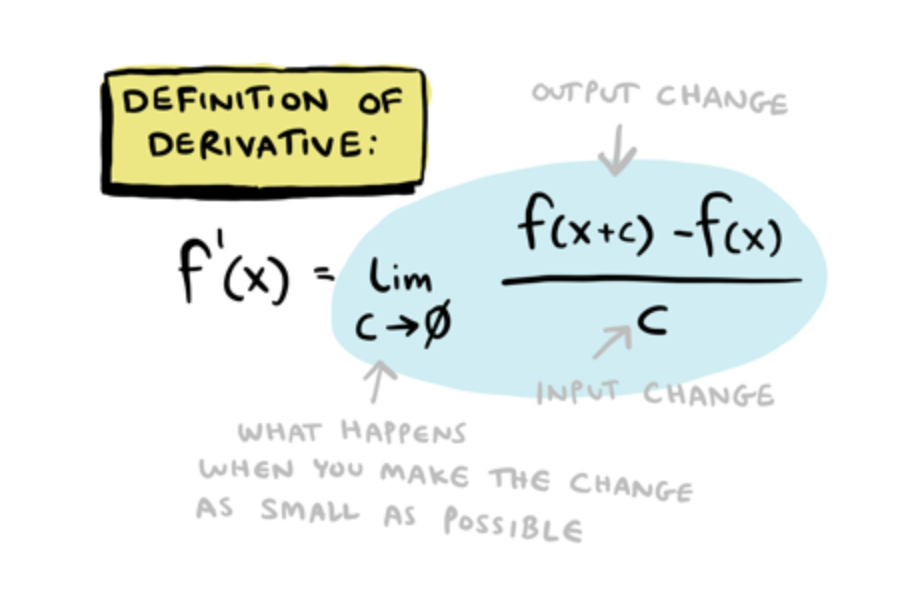 DEFINITION OF
DERIVATIVE:
OUTPUT CHANGE
f'(x) = lim c→0 f(x+c) - f(x) / c
INPUT CHANGE
WHAT HAPPENS
WHEN YOU MAKE THE CHANGE
AS SMALL AS POSSIBLE